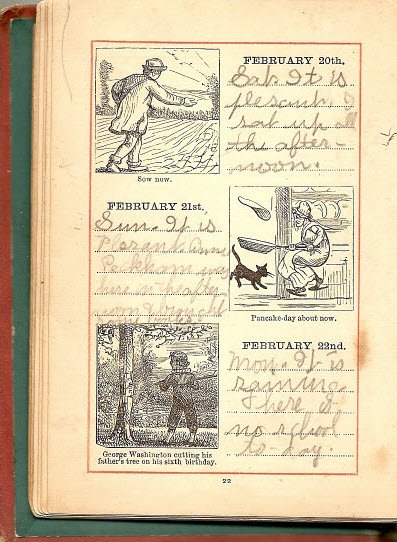 FEBRUARY 20th.
Sat. It is
plesant. I
sat up all
the after-
noon.
Sow now.
FEBRUARY 21st.
Sun. It is
Plesant
Peckham was
here in the after
noon & brought
Pancake-day about now.
FEBRUARY 22nd.
Mon. It is
raining
There is
no school
to-day.
George Washington cutting his
father's tree on his sixth birthday.
22